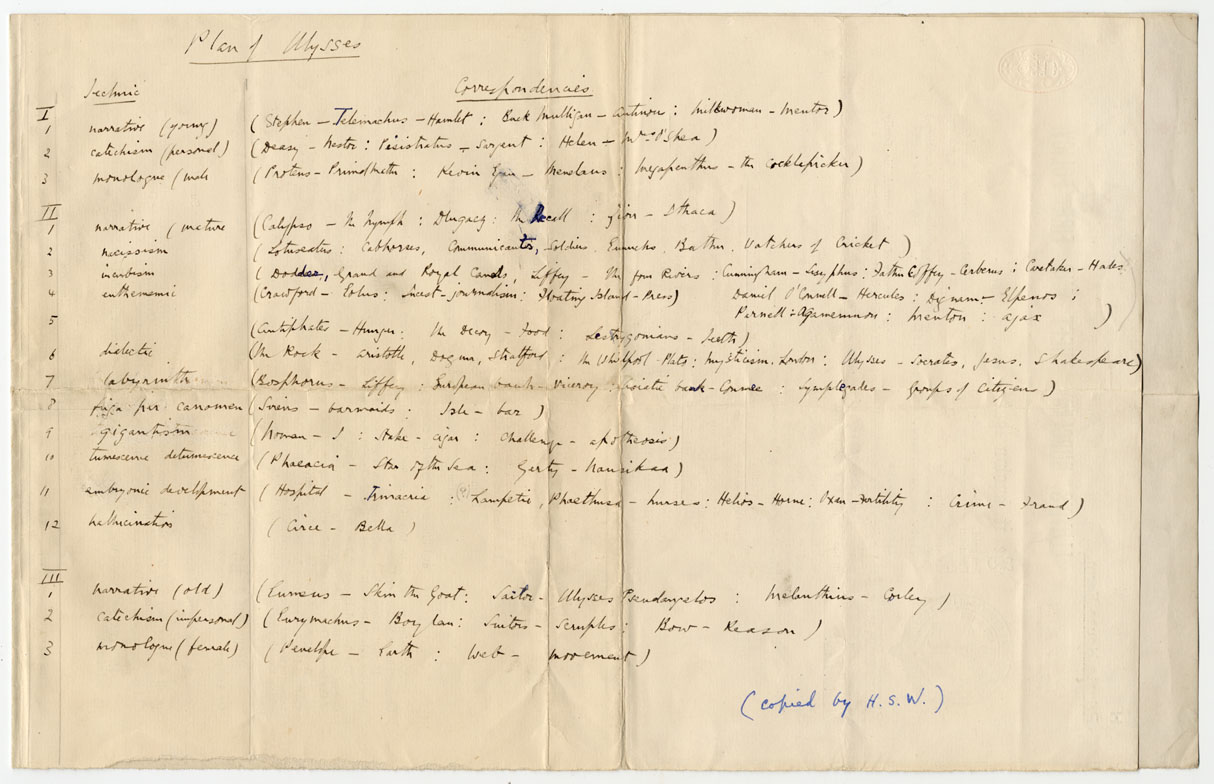 Plan of Ulysses
Technic Correspondencies
I
1 narrative (young) (Stephen – Telemachus – Hamlet : Buck Mulligan – Antinous : Milkwoman – Mentor)
2 catechism (personal) (Deasy – Nestor : Pisistratus – Sargent : Helen – Mrs O'Shea)
3 monologue (male (Proteus – Primal Matter : Kevin Egan – Menelaus : Megapenthus – the Cocklepicker)
II
1 narrative (mature (Calypso – the Nymph : Dlugacz : the Recall : Zion – Ithaca)
2 narcissism (Lotuseaters : Cabhorses, Communicants, Soldiers, Eunuchs, Bather, Watchers of Cricket)
3 incubism (Dodder, Grand and Royal Canals, Liffey – the four Rivers : Cunningham – Sisyphus : Father Coffey – Cerberus : Caretaker – Hades
4 enthymemic (Crawford – Eolus : Incest – journalism : Floating Island – Press) Daniel O'Connell – Hercules : Dignam – Elpenos :
Parnell : Agamemnon : Menton : Ajax )
5 (Antiphates – Hunger : the Decoy – Food : Lestrygonians – Teeth)
6 dialectic (the Rock – Aristotle, Dogma, Stratford : the Whirlpool – Plato : Mysticism, London : Ulysses – Socrates, Jesus, Shakespeare)
7 labyrinth (Bosphorus – Liffey : European bank – Viceroy : Asiatic bank – Conmee : Symplegates – groups of Citizens)
8 fuga per canonem (Sirens – barmaids : Isle – bar)
9 gigantism (Noman – I : Stake – cigar : challenge – apotheosis)
10 tumescence detumescence (Phaeacia – Star of the Sea : Gerty – Nausikaa)
11 embryonic development (Hospital – Trinacria : Lampetie, Phaethusa – nurses : Helios – Horne : Oxen – Fertility : Crime – Fraud)
12 hallucination (Circe – Bella)
III
1 narrative (old) (Eumeus – Skin the Goat : Sailor – Ulysses Pseudangelos : Melanthius – Corley)
2 catechism (impersonal) (Eurymachus – Boylan : Suitors – Scruples : Bow – Reason)
3 monologue (female) (Penelope – Earth : Web – movement)
(copied by H.S.W.)